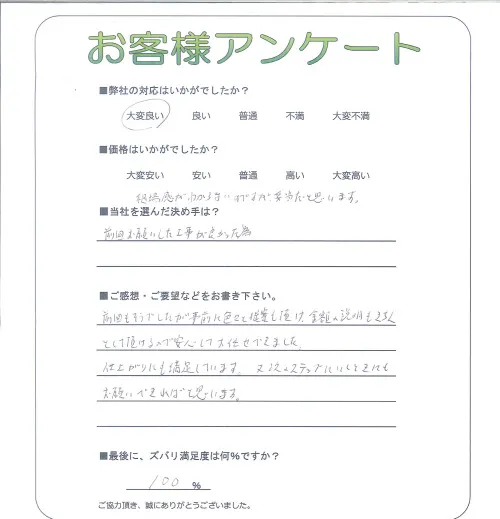 お客様アンケート
■弊社の対応はいかがでしたか？
大変良い 良い 普通 不満 大変不満
■価格はいかがでしたか？
大変安い 安い 普通 高い 大変高い
相場感がわからないですが妥当だと思います。
■当社を選んだ決め手は？
前回お願いした工事が良かった為
■ご感想・ご要望などをお書き下さい。
前回もそうでしたが事前に色々と提案も頂け、金額の説明もきちん
として頂けるので安心してお任せできました。
仕上がりにも満足しています。又次のステップにいくときにも
お願いできればと思います。
■最後に、ズバリ満足度は何%ですか？
100 %
ご協力頂き、誠にありがとうございました。